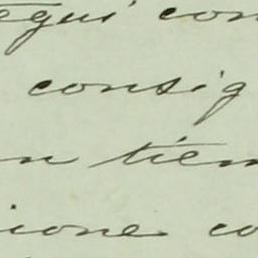 egui con
consig
n tiem
ione co